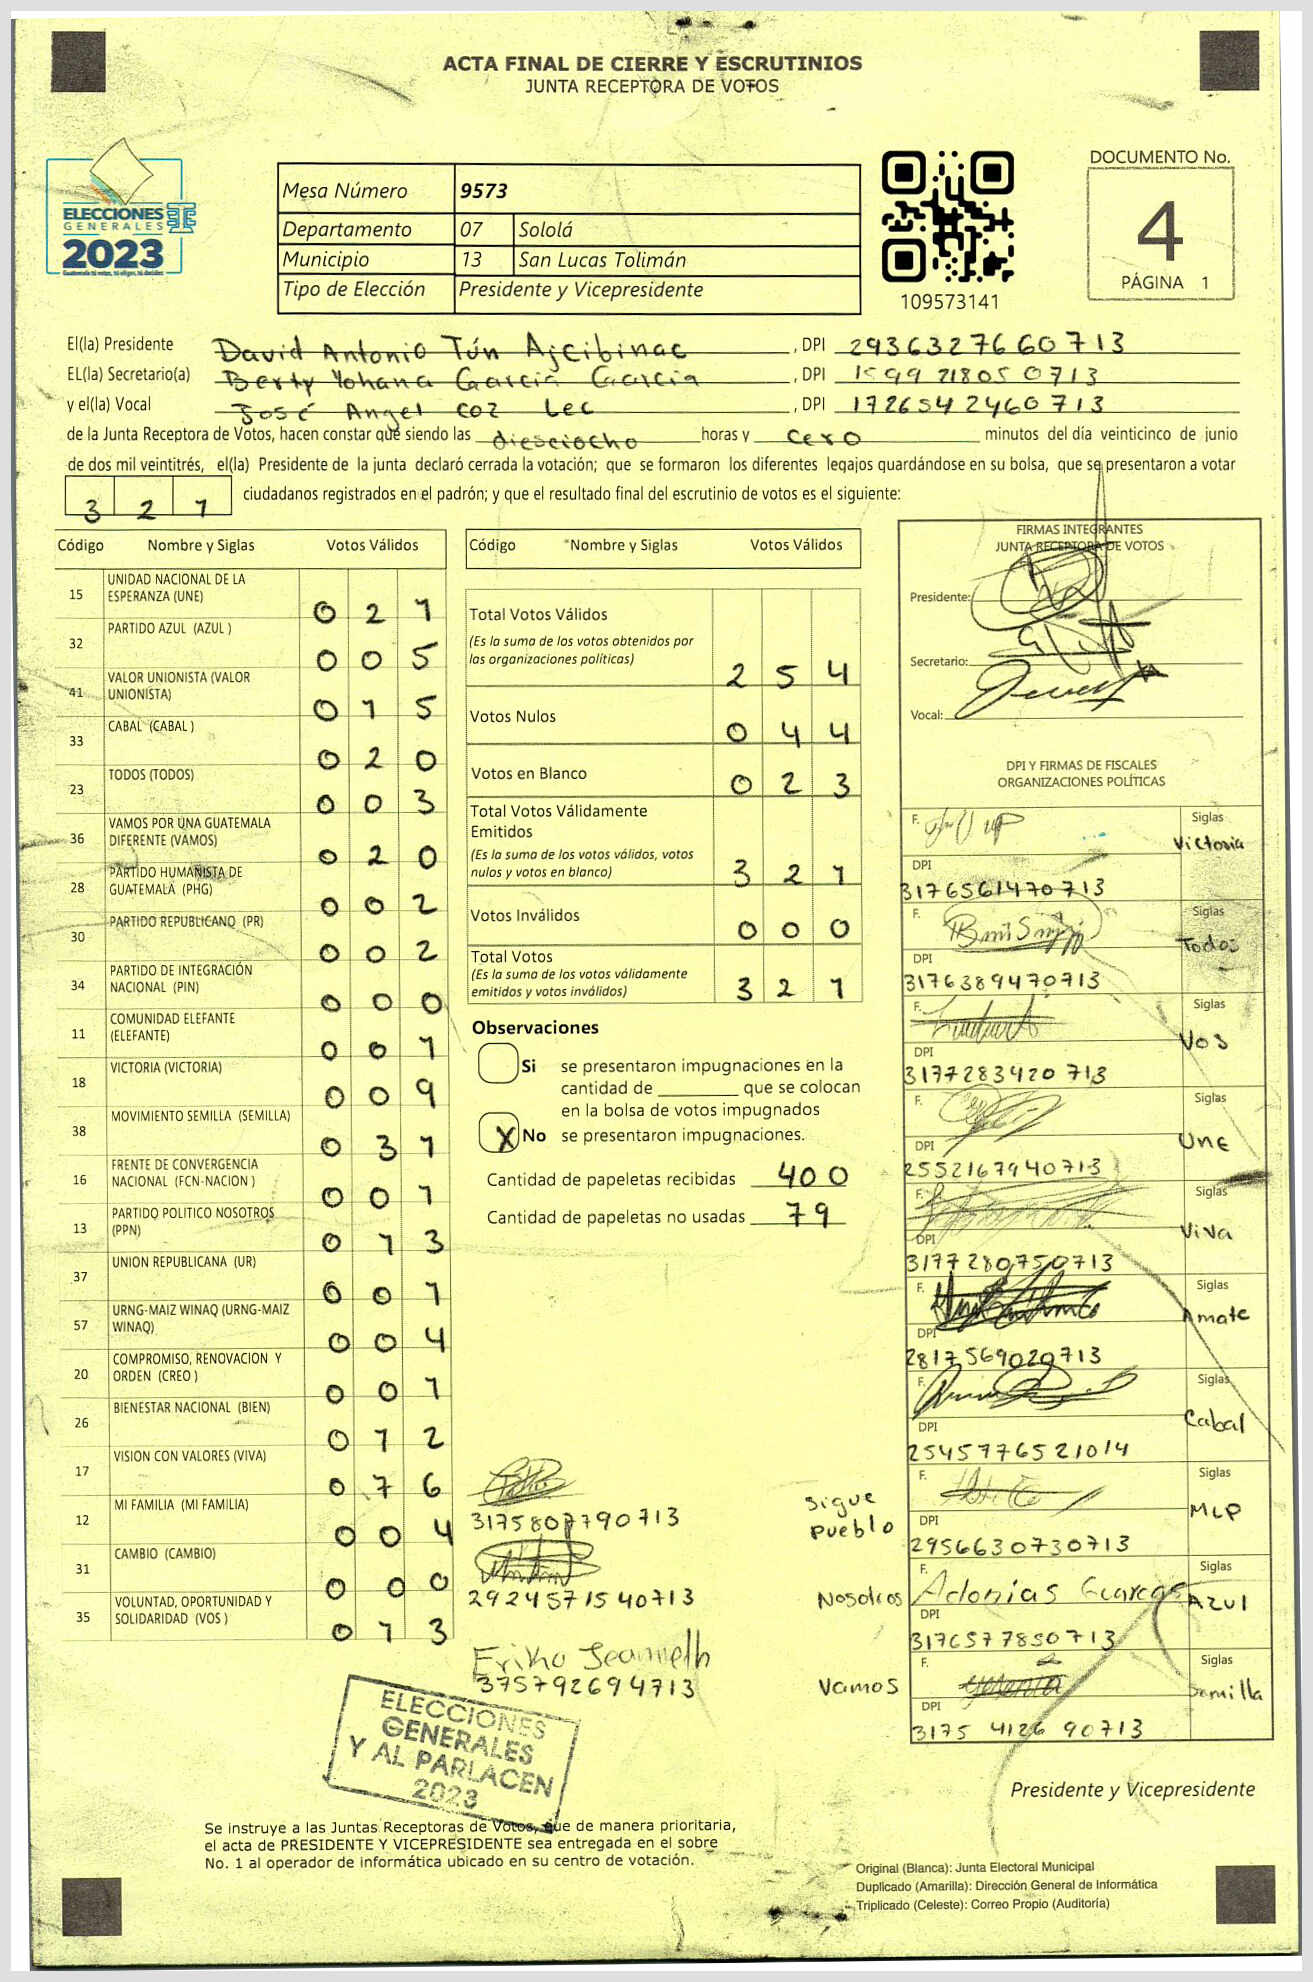 ACTA FINAL DE CIERRE Y ESCRUTINIOS
JUNTA RECEPTORA DE VOTOS
ELECCIONES
GENERALES
2023
Mesa Número 9573
Departamento 07 Sololá
Municipio 13 San Lucas Tolimán
Tipo de Elección Presidente y Vicepresidente
109573141
DOCUMENTO No.
4
PÁGINA 1
El(la) Presidente David Antonio Tún Ajcibinac , DPI 2936327660713
EL(la) Secretario(a) Berty Yohana García García , DPI 1599218050713
y el(la) Vocal José Angel Coz Lec , DPI 1726542460713
de la Junta Receptora de Votos, hacen constar que siendo las diesciocho horas y cero minutos del día veinticinco de junio
de dos mil veintitrés, el(la) Presidente de la junta declaró cerrada la votación; que se formaron los diferentes legajos guardándose en su bolsa, que se presentaron a votar
3 2 1 ciudadanos registrados en el padrón; y que el resultado final del escrutinio de votos es el siguiente:
Código Nombre y Siglas Votos Válidos
15 UNIDAD NACIONAL DE LA ESPERANZA (UNE) 0 2 1
32 PARTIDO AZUL (AZUL ) 0 0 5
41 VALOR UNIONISTA (VALOR UNIONISTA) 0 1 5
33 CABAL (CABAL ) 0 2 0
23 TODOS (TODOS) 0 0 3
36 VAMOS POR UNA GUATEMALA DIFERENTE (VAMOS) 0 2 0
28 PARTIDO HUMANISTA DE GUATEMALA (PHG) 0 0 2
30 PARTIDO REPUBLICANO (PR) 0 0 2
34 PARTIDO DE INTEGRACIÓN NACIONAL (PIN) 0 0 0
11 COMUNIDAD ELEFANTE (ELEFANTE) 0 0 1
18 VICTORIA (VICTORIA) 0 0 9
38 MOVIMIENTO SEMILLA (SEMILLA) 0 3 1
16 FRENTE DE CONVERGENCIA NACIONAL (FCN-NACION ) 0 0 1
13 PARTIDO POLITICO NOSOTROS (PPN) 0 1 3
37 UNION REPUBLICANA (UR) 0 0 1
57 URNG-MAIZ WINAQ (URNG-MAIZ WINAQ) 0 0 4
20 COMPROMISO, RENOVACION Y ORDEN (CREO ) 0 0 1
26 BIENESTAR NACIONAL (BIEN) 0 1 2
17 VISION CON VALORES (VIVA) 0 7 6
12 MI FAMILIA (MI FAMILIA) 0 0 4
31 CAMBIO (CAMBIO) 0 0 0
35 VOLUNTAD, OPORTUNIDAD Y SOLIDARIDAD (VOS ) 0 1 3
Código Nombre y Siglas Votos Válidos
Total Votos Válidos
(Es la suma de los votos obtenidos por
las organizaciones políticas) 2 5 4
Votos Nulos 0 4 4
Votos en Blanco 0 2 3
Total Votos Válidamente
Emitidos
(Es la suma de los votos válidos, votos
nulos y votos en blanco) 3 2 1
Votos Inválidos 0 0 0
Total Votos
(Es la suma de los votos válidamente
emitidos y votos inválidos) 3 2 1
Observaciones
Si se presentaron impugnaciones en la
cantidad de ________ que se colocan
en la bolsa de votos impugnados
X No se presentaron impugnaciones.
Cantidad de papeletas recibidas 400
Cantidad de papeletas no usadas 79
3175807790713 Sigue Pueblo
2924571540713 Nosotros
375792694713 Vamos
FIRMAS INTEGRANTES
JUNTA RECEPTORA DE VOTOS
Presidente:
Secretario:
Vocal:
DPI Y FIRMAS DE FISCALES
ORGANIZACIONES POLÍTICAS
F. Siglas Victoria
DPI
3176561470713
F. Siglas Todos
DPI
3176389470713
F. Siglas Vos
DPI
3177283420713
F. Siglas Une
DPI
2552167940713
F. Siglas Viva
DPI
3177280750713
F. Siglas Amate
DPI
2817569020713
F. Siglas Cabal
DPI
2545776521014
F. Siglas MLP
DPI
2956630730713
F. Adonias Siglas Azul
DPI
3176577850713
F. Siglas Semilla
DPI
3175 4126 90713
ELECCIONES
GENERALES
Y AL PARLACEN
2023
Presidente y Vicepresidente
Se instruye a las Juntas Receptoras de Votos, que de manera prioritaria,
el acta de PRESIDENTE Y VICEPRESIDENTE sea entregada en el sobre
No. 1 al operador de informática ubicado en su centro de votación.
Original (Blanca): Junta Electoral Municipal
Duplicado (Amarilla): Dirección General de Informática
Triplicado (Celeste): Correo Propio (Auditoría)